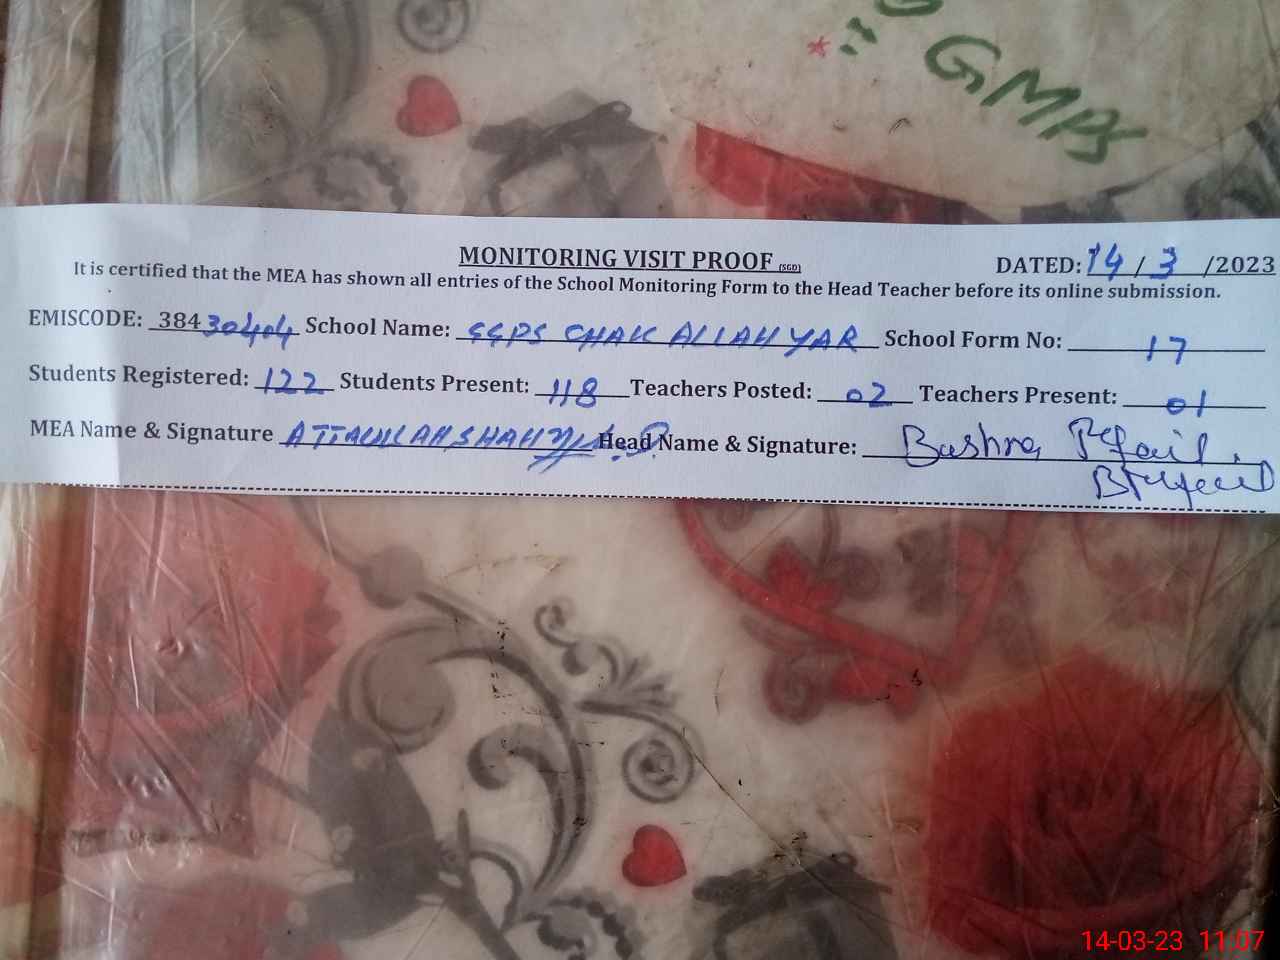 GMPS
MONITORING VISIT PROOF (SGD)
DATED: 14 / 3 /2023
It is certified that the MEA has shown all entries of the School Monitoring Form to the Head Teacher before its online submission.
EMISCODE: 38430444 School Name: GGPS CHAK ALLAH YAR School Form No: 17
Students Registered: 122 Students Present: 118 Teachers Posted: 02 Teachers Present: 01
MEA Name & Signature ATTAULLAH SHAH Head Name & Signature: Bushra
14-03-23 11:07